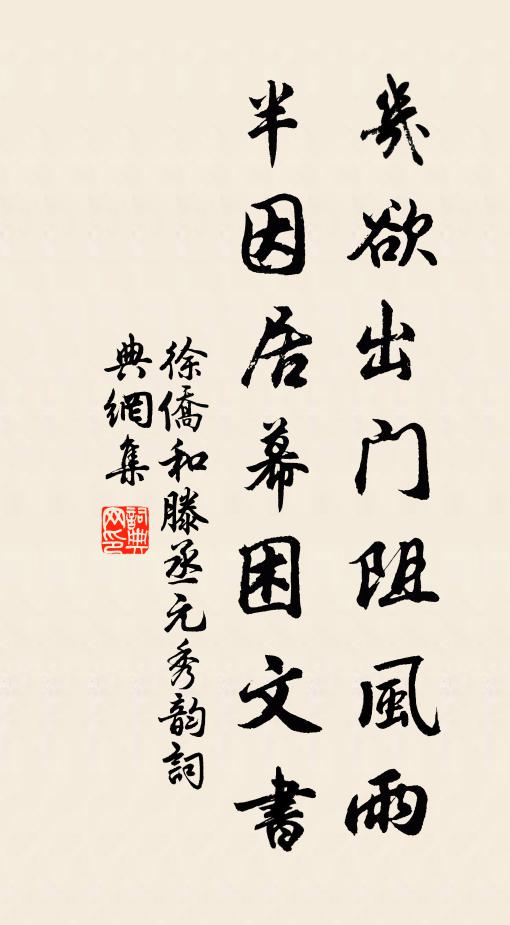 幾欲出门阻風雨
半因居幕困文書
徐僑和滕丞元秀韵詞
典網集
詞典
网印